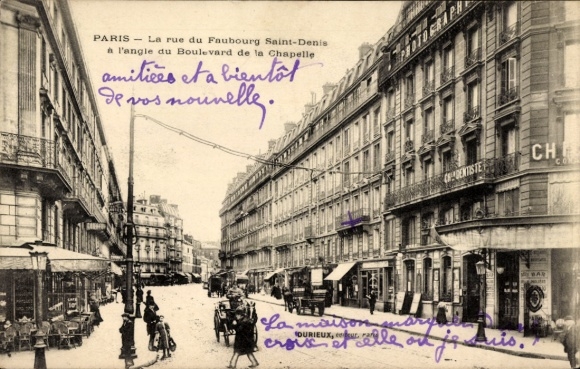 PARIS - La rue du Faubourg Saint-Denis
à l'angle du Boulevard de la Chapelle
amitiées et a bientôt
de vos nouvelle.
PHOTOGRAPHIE
DENTISTE
La maison marquée
croix et celle ou je suis.